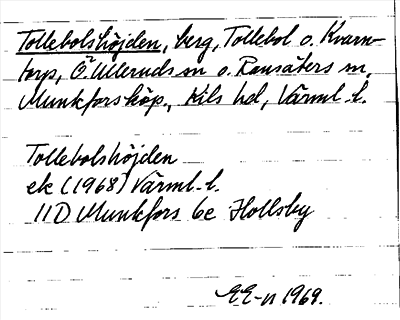 Tollebolshöjden, berg, Tollebol o. Kvarn-
torp, Ö Ulleruds sn o. Ransäters sn,
Munkfors köp., Kils hd, Värml. l.
Tollebolshöjden
ek (1968) Värml. l.
11D Munkfors 6e Hollsby
EE-n 1969.